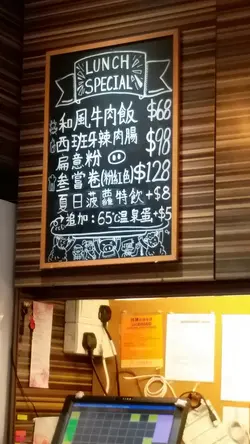 LUNCH
SPECIAL
和風牛肉飯 $68
西班牙辣肉腸 $98
扁意粉
叁嘗卷(粉紅色) $128
夏日菠蘿特飲 +$8
追加：65℃溫泉蛋+$5